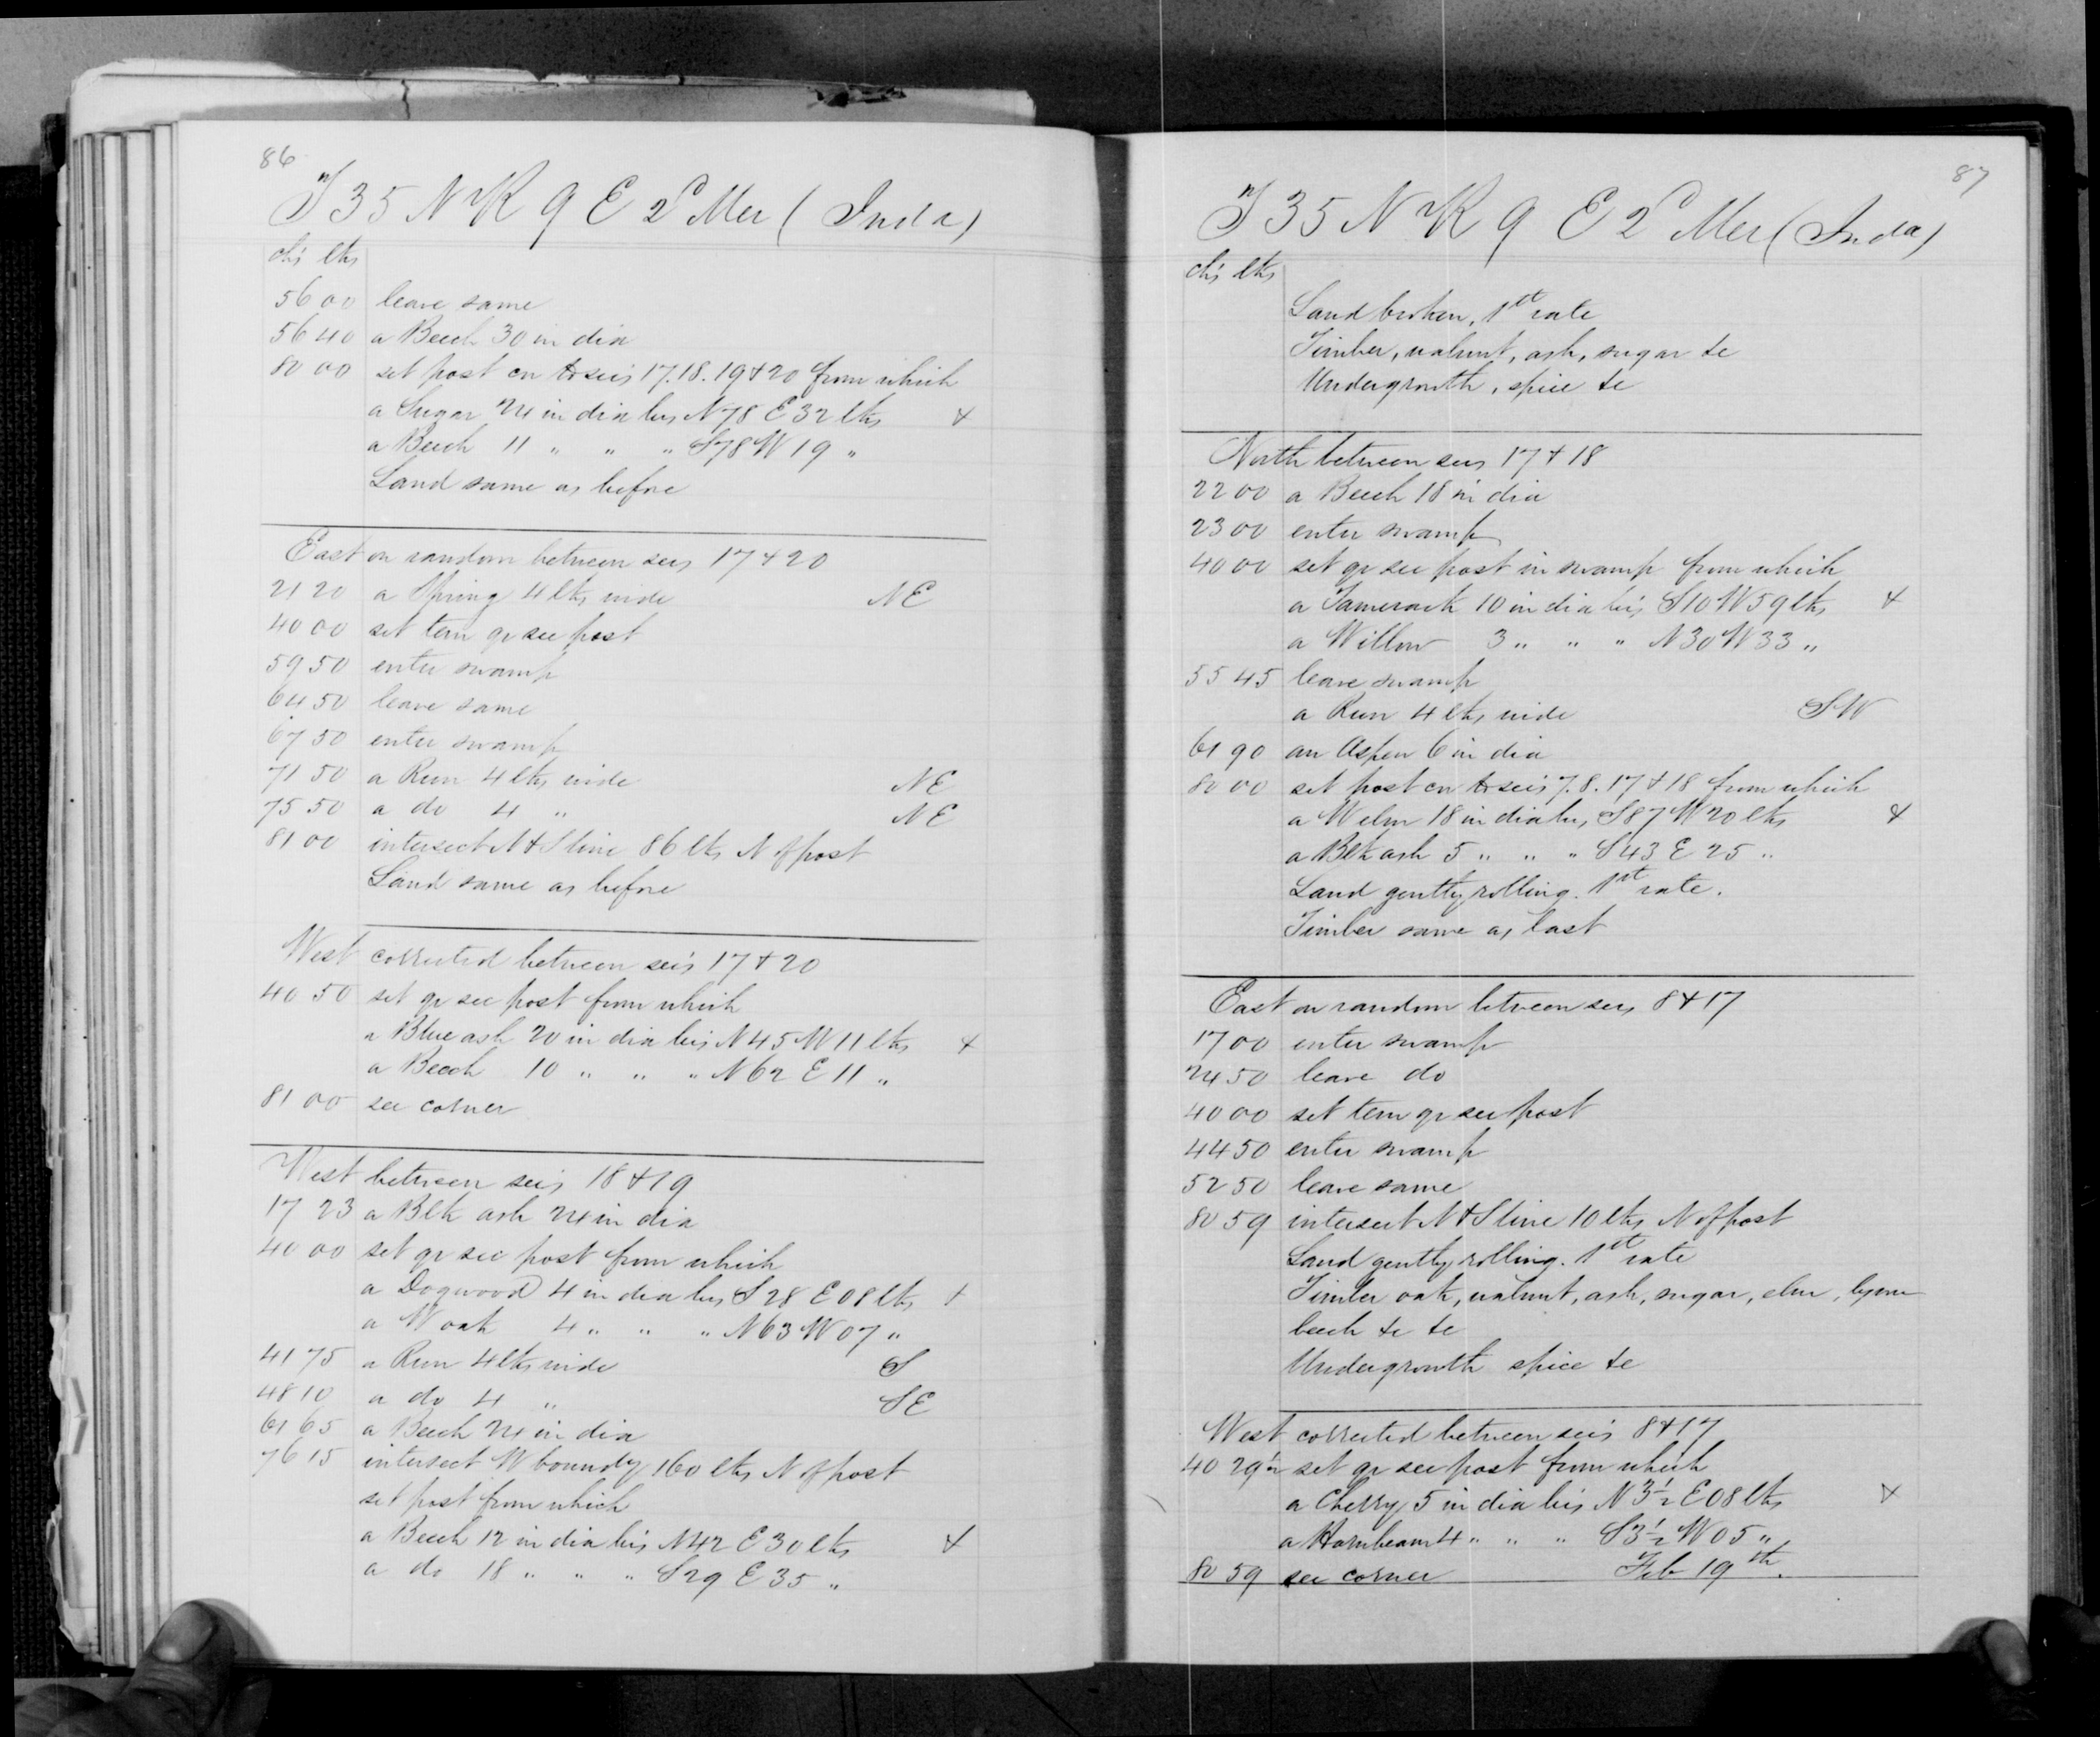 86
T 35 N R 9 E 2d Mer (Inda)
chs lks
56 00 leave same
56 40 a Beech 30 in dia
80 00 set post cor to secs 17.18.19 & 20 from which
a Sugar 24 in dia brs N 78 E 32 lks &
a Beech 11 " " " S 78 W 19 "
Land same as before
East on random between secs 17 & 20
21 20 a Spring 4 lks wide NE
40 00 set tem qr sec post
59 50 enter swamp
64 50 leave same
67 50 enter swamp
71 50 a Run 4 lks wide NE
75 50 a do 4 " NE
81 00 intersect N & S line 86 lks N of post
Land same as before
West corrected between secs 17 & 20
40 50 set qr sec post from which
a Blue ash 20 in dia brs N 45 W 11 lks &
a Beech 10 " " " N 62 E 11 "
81 00 sec corner
West between secs 18 & 19
17 23 a Blk ash 24 in dia
40 00 set qr sec post from which
a Dogwood 4 in dia brs S 28 E 08 lks &
a W oak 4 " " " N 63 W 07 "
41 75 a Run 4 lks wide S
48 10 a do 4 " SE
61 65 a Beech 24 in dia
76 15 intersect W boundy 160 lks N of post
set post from which
a Beech 12 in dia brs N 42 E 30 lks &
a do 18 " " " S 29 E 35 "
87
T 35 N R 9 E 2d Mer (Inda)
chs lks
Land broken, 1st rate
Timber, walnut, ash, sugar &c
Undergrowth, spice &c
North between secs 17 & 18
22 00 a Beech 18 in dia
23 00 enter swamp
40 00 set qr sec post in swamp from which
a Tamerack 10 in dia brs S 10 W 59 lks &
a Willow 3 " " " N 30 W 33 "
55 45 leave swamp
a Run 4 lks wide SW
61 90 an Aspen 6 in dia
80 00 set post cor to secs 7.8.17 & 18 from which
a W elm 18 in dia brs S 87 W 20 lks &
a Blk ash 5 " " " S 43 E 25 "
Land gently rolling. 1st rate.
Timber same as last
East on random between secs 8 & 17
17 00 enter swamp
24 50 leave do
40 00 set tem qr sec post
44 50 enter swamp
52 50 leave same
80 59 intersect N & S line 10 lks N of post
Land gently rolling. 1st rate
Timber oak, walnut, ash, sugar, elm, lynn
beech &c &c
Undergrowth spice &c
West corrected between secs 8 & 17
40 29½ set qr sec post from which
a Cherry 5 in dia brs N 3½ E 08 lks &
a Hornbeam 4 " " " S 3½ W 05 "
80 59 sec corner Feb 19th.